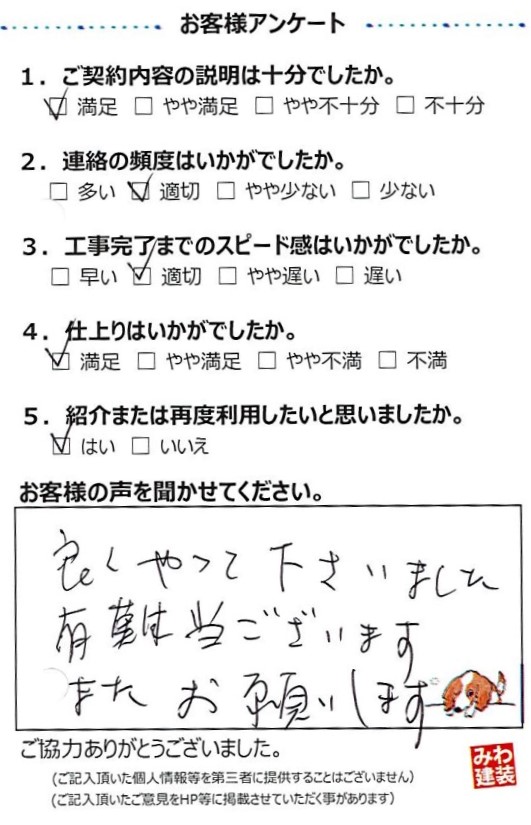 お客様アンケート
1．ご契約内容の説明は十分でしたか。
☑ 満足 □ やや満足 □ やや不十分 □ 不十分
2．連絡の頻度はいかがでしたか。
□ 多い ☑ 適切 □ やや少ない □ 少ない
3．工事完了までのスピード感はいかがでしたか。
□ 早い ☑ 適切 □ やや遅い □ 遅い
4．仕上りはいかがでしたか。
☑ 満足 □ やや満足 □ やや不満 □ 不満
5．紹介または再度利用したいと思いましたか。
☑ はい □ いいえ
お客様の声を聞かせてください。
良くやって下さいました
有難当ございます
またお願いします
ご協力ありがとうございました。
(ご記入頂いた個人情報等を第三者に提供することはございません)
(ご記入頂いたご意見をHP等に掲載させていただく事があります)
みわ
建装